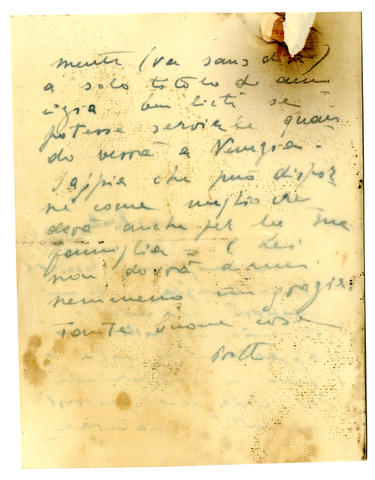 mente (va sans dire)
a solo titolo di ami
cizia
potesse servirle quan
do verrà a Venezia.
Sappia che può dispor
ne come meglio cre
derà anche per la sua
famiglia e Lei
non dovrà darmi
nemmeno un grazie.
Tante buone cose